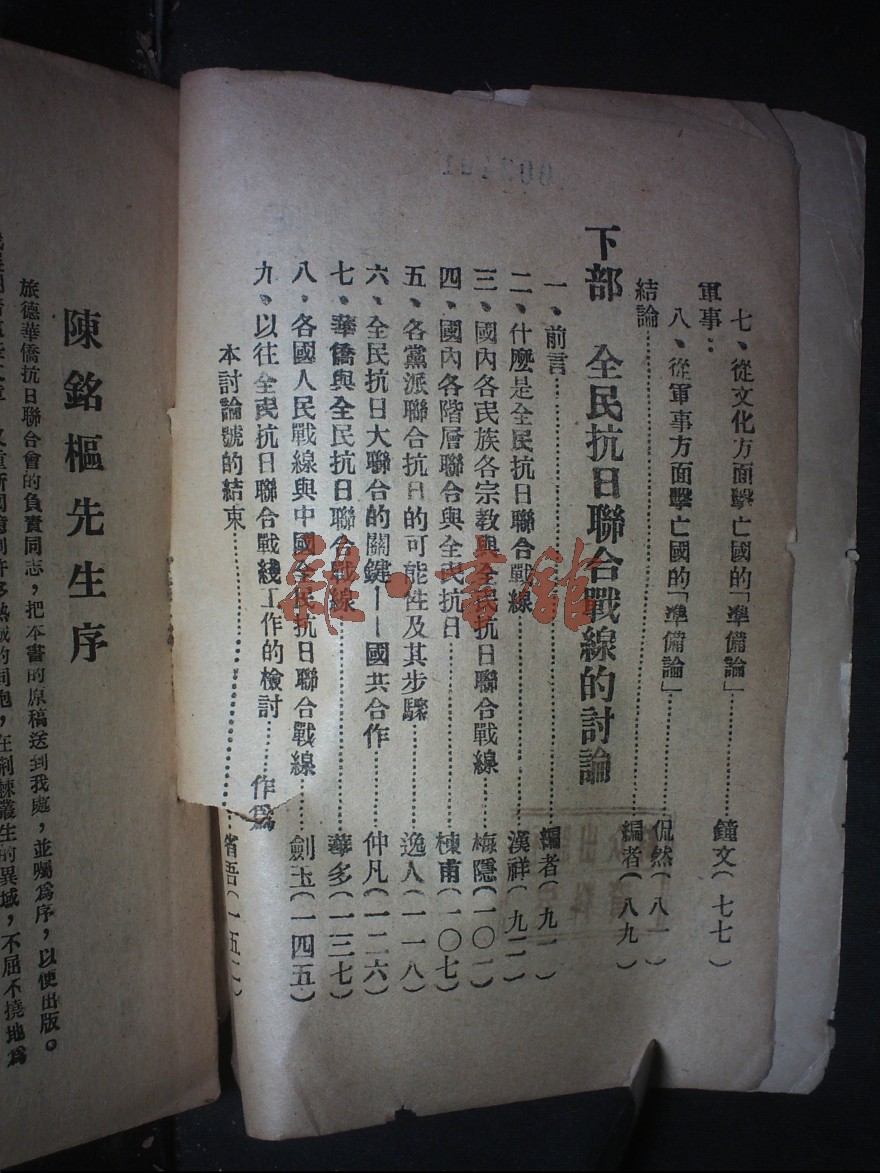 七、從文化方面擊亡國的「準備論」……鐘文(七七)
軍事：
八、從軍事方面擊亡國的「準備論」……侃然(八一)
結論……編者(八九)
下部 全民抗日聯合戰線的討論
一、前言……編者(九一)
二、什麼是全民抗日聯合戰線……漢祥(九二)
三、國內各民族各宗教與全民抗日聯合戰線……梅隱(一〇一)
四、國內各階層聯合與全民抗日……棟甫(一〇七)
五、各黨派聯合抗日的可能性及其步驟……逸人(一一八)
六、全民抗日大聯合的關鍵——國共合作……仲凡(一二六)
七、華僑與全民抗日聯合戰線……華多(一三七)
八、各國人民戰線與中國全民抗日聯合戰線……劍玉(一四五)
九、以往全民抗日聯合戰綫工作的檢討……作爲
本討論號的結束……省吾(一五二)
雜·書館
陳銘樞先生序
旅德華僑抗日聯合會的負責同志，把本書的原稿送到我處，並囑爲序，以便出版。
許多熱誠的同胞，在荆棘叢生的異域，不屈不撓地爲